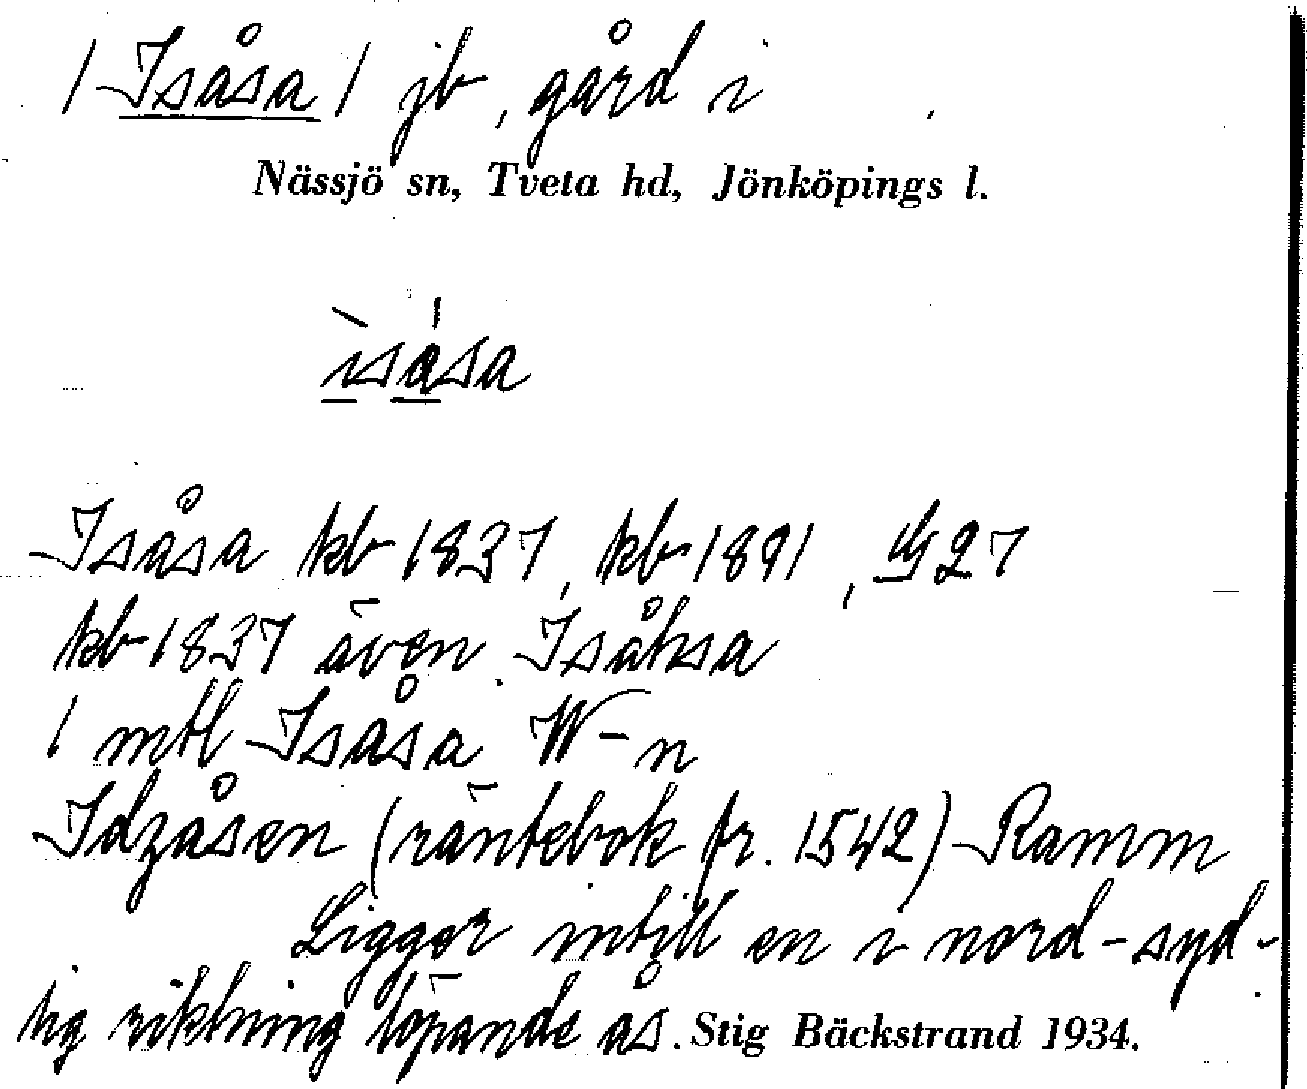 / Isåsa / jb, gård i
Nässjö sn, Tveta hd, Jönköpings l.
ìsása
Isåsa kb 1837, kb 1891, G 27
kb 1837 även Isåhsa
1 mtl Isåsa W-n
Idzåsen (räntebok fr. 1542) Ramm
Ligger intill en i nord-syd-
lig riktning löpande ås. Stig Bäckstrand 1934.